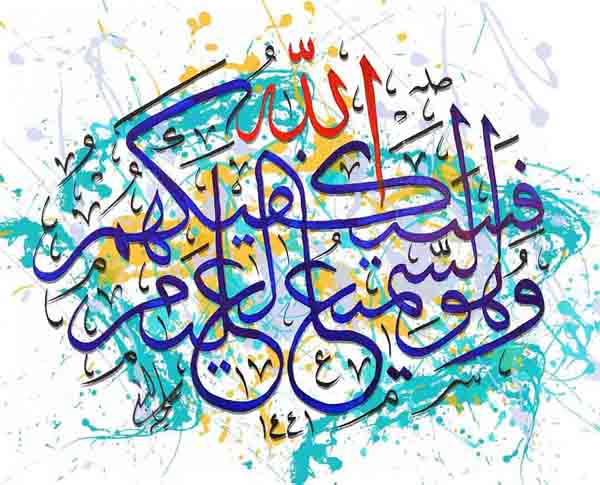 فَسَيَكْفِيكَهُمُ اللَّهُ ۖ
وَهُوَ السَّمِيعُ الْعَلِيمُ
١٤٤١